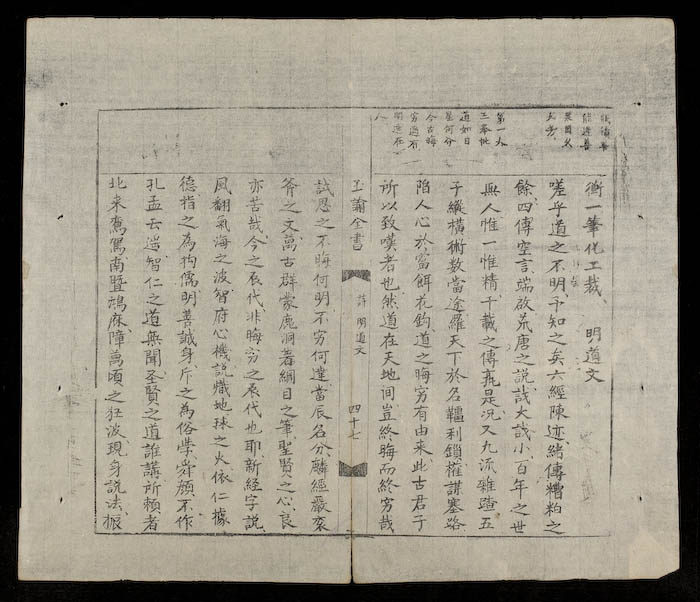 第一大
三奉批
道如日
星何分
今古晦
窮道有
明應在
人
衡一筆化工裁　明道文
嗟乎道之不明予知之矣六經陳迹緒傳糟粕之
餘四傳空言端啟荒唐之說哉大哉小百年之世
與人惟一惟精千載之傳竟是况又九流雜遝五
子縱橫術數當途羅天下於名韁利鎖權謀塞路
陷人心於窗餌花鈎道之晦穷有由来此古君子
所以致嘆者也然道在天地间豈終晦而終穷哉
玉論全書　詩　明道文　四十七
試思之不晦何明不穷何達當辰名分麟經嚴衮
斧之文萬古群蒙鹿洞著綱目之筆聖賢之心良
亦苦哉今之辰代非晦穷之辰代也耶新經字説
風翻氣海之波智府心機説熾地球之火依仁據
德指之為拘儒明善誠身斥之為俗學舜顔不作
孔孟云遥智仁之道無聞圣賢之道誰講所頼者
北来鸞駕南曁鴻庥障萬頃之狂波現身説法振